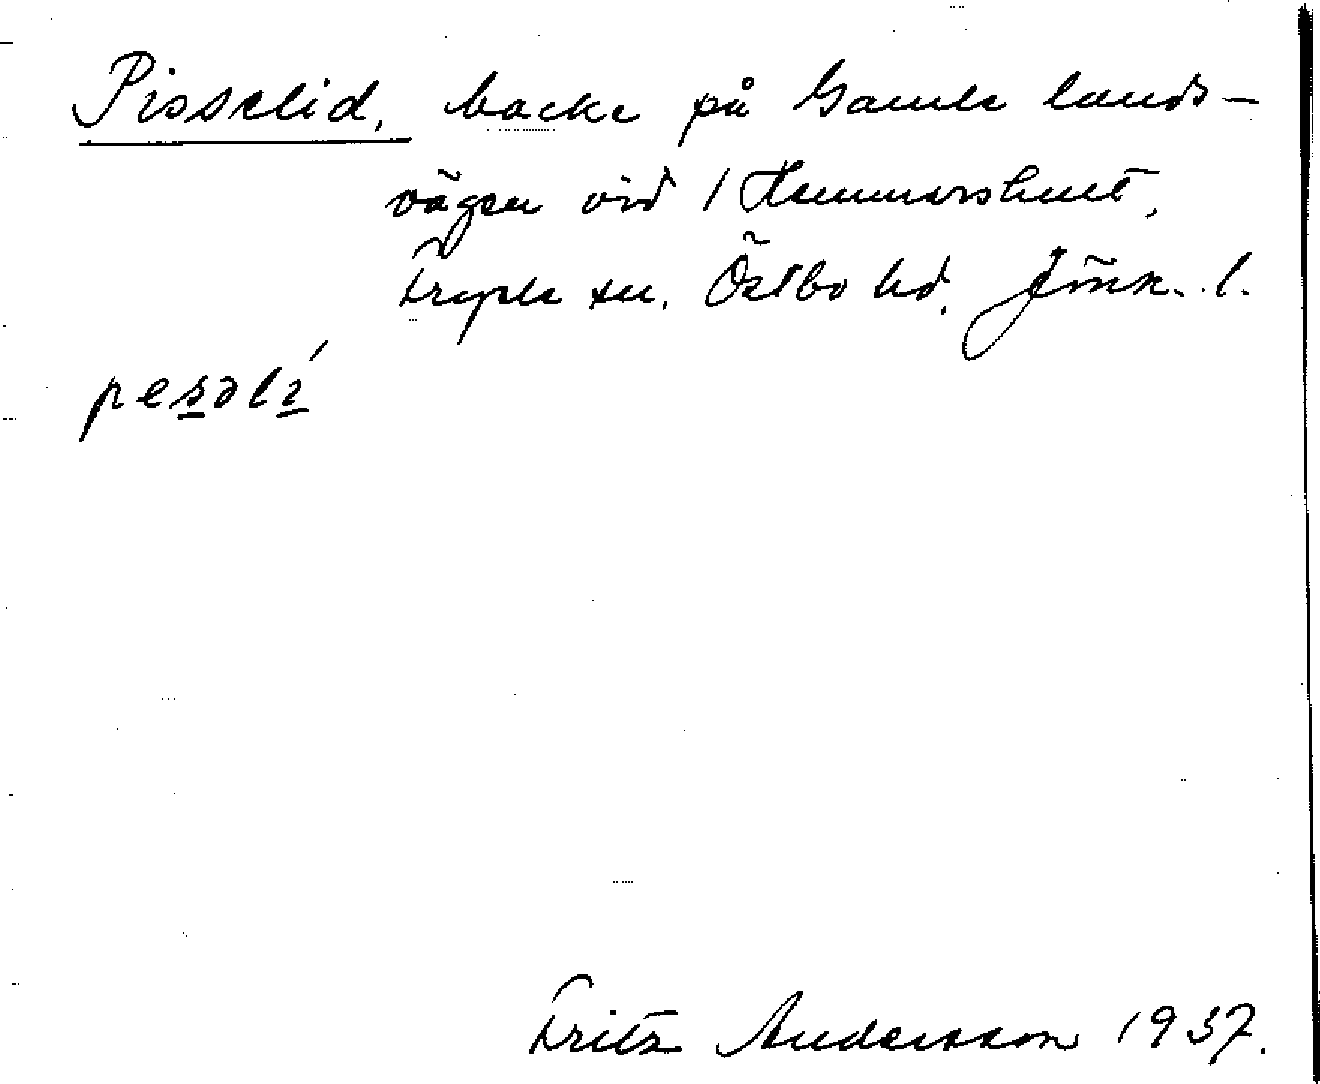 Pisselid, backe på Gamla lands-
vägen vid / Hammarshult,
Fryele sn. Östbo hd. Jönk. l.
pesəlí
Fritz Andersson 1937.